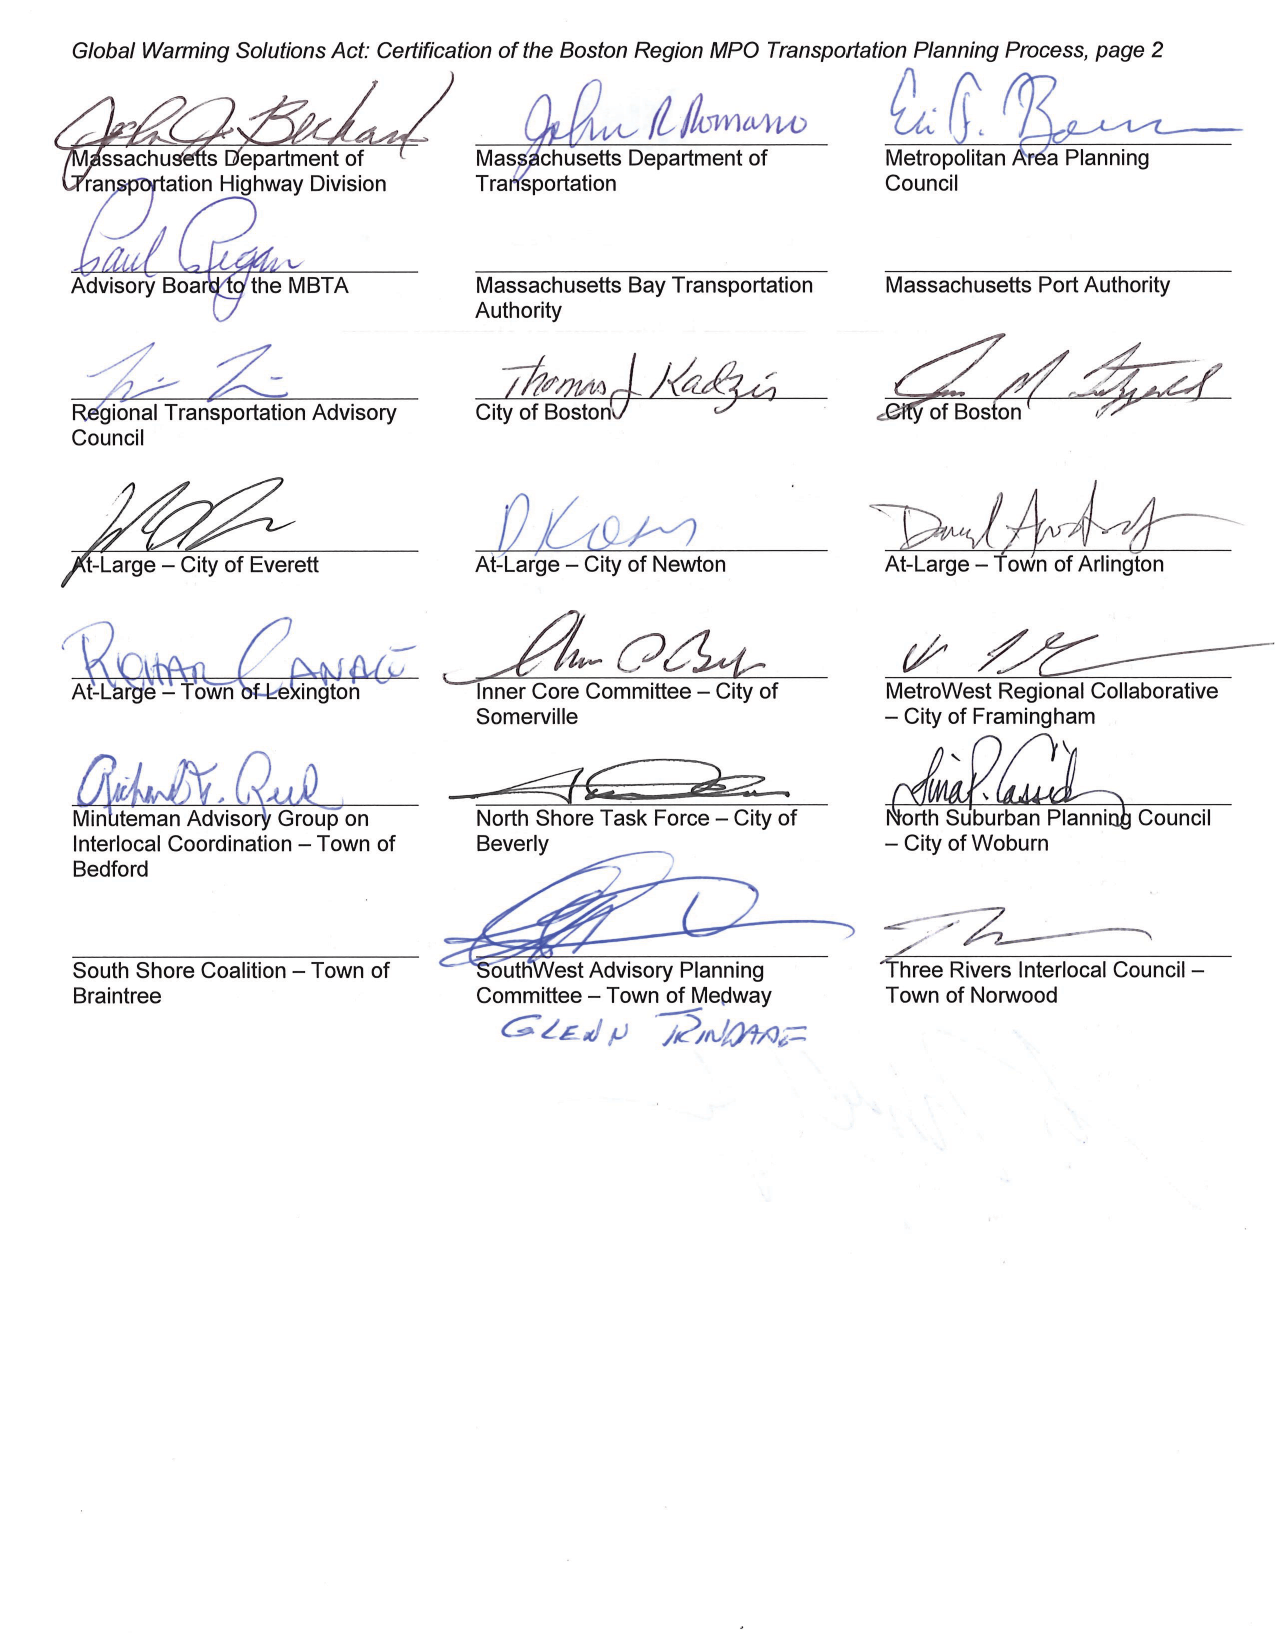 Global Warming Solutions Act: Certification of the Boston Region MPO Transportation Planning Process, page 2
John J. Bechard
Massachusetts Department of
Transportation Highway Division
John R Romano
Massachusetts Department of
Transportation
Metropolitan Area Planning
Council
Paul Regan
Advisory Board to the MBTA
Massachusetts Bay Transportation
Authority
Massachusetts Port Authority
Regional Transportation Advisory
Council
Thomas J Kadzis
City of Boston
City of Boston
At-Large – City of Everett
At-Large – City of Newton
At-Large – Town of Arlington
At-Large – Town of Lexington
Inner Core Committee – City of
Somerville
MetroWest Regional Collaborative
– City of Framingham
Richard F. Reed
Minuteman Advisory Group on
Interlocal Coordination – Town of
Bedford
North Shore Task Force – City of
Beverly
Tina P. Cassidy
North Suburban Planning Council
– City of Woburn
South Shore Coalition – Town of
Braintree
SouthWest Advisory Planning
Committee – Town of Medway
GLENN TRINDADE
Three Rivers Interlocal Council –
Town of Norwood